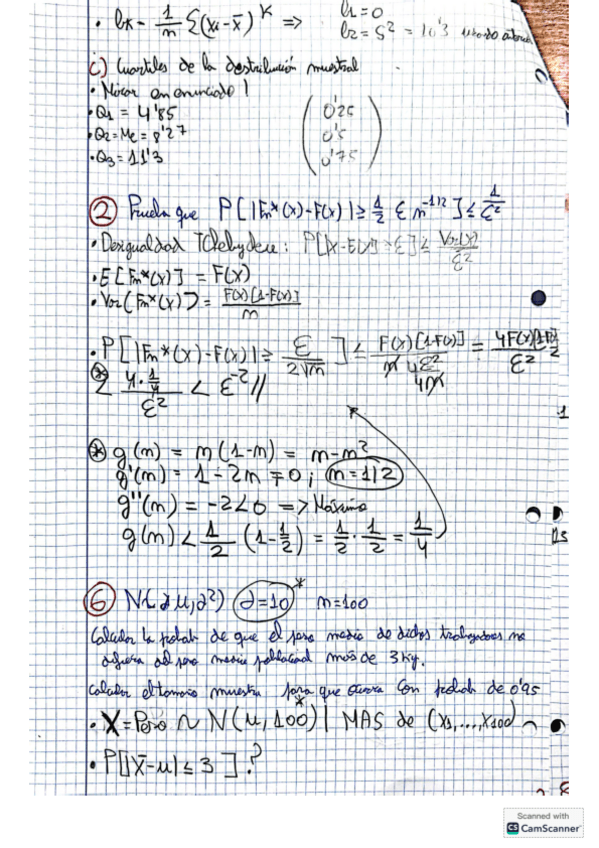 • bk = 1/n Σ(xi - x̄)^K => b1 = 0
b2 = S² = 10'3
c) Cuartiles de la distribución muestral
• Mirar en enunciado!
• Q1 = 4'85
• Q2 = Me = 8'27
• Q3 = 11'3
(0'25
0'5
0'75)
② Prueba que P[|Fn*(x)-F(x)| ≥ 1/2 ε n^-1/2] ≤ 1/ε²
• Desigualdad TChebyshev: P[|X-E(x)| > ε] ≤ Var(x)/ε²
• E[Fn*(x)] = F(x)
• Var(Fn*(x)) = F(x)[1-F(x)]/n
• P[|Fn*(x)-F(x)| ≥ ε/2√n] ≤ F(x)[1-F(x)]/n 4ε²/4n = 4F(x)[1-F(x)]/ε²
* ≤ 4·1/4/ε² < ε^-2 //
* g(m) = m(1-m) = m-m²
g'(m) = 1-2m = 0; m=1/2
g''(m) = -2<0 => Máximo
g(m) < 1/2 (1-1/2) = 1/2 · 1/2 = 1/4
⑥ N(μ,σ²) σ=10* n=100
Calcular la probab de que el peso medio de dichos trabajadores no
difiera del peso medio poblacional más de 3kg.
Calcular el tamaño muestra para que ocurra con probab de 0'95
• X = Peso ~ N(μ,100*) | MAS de (x1,...,x100)
• P[|X̄-μ| ≤ 3]?
Scanned with
CS CamScanner